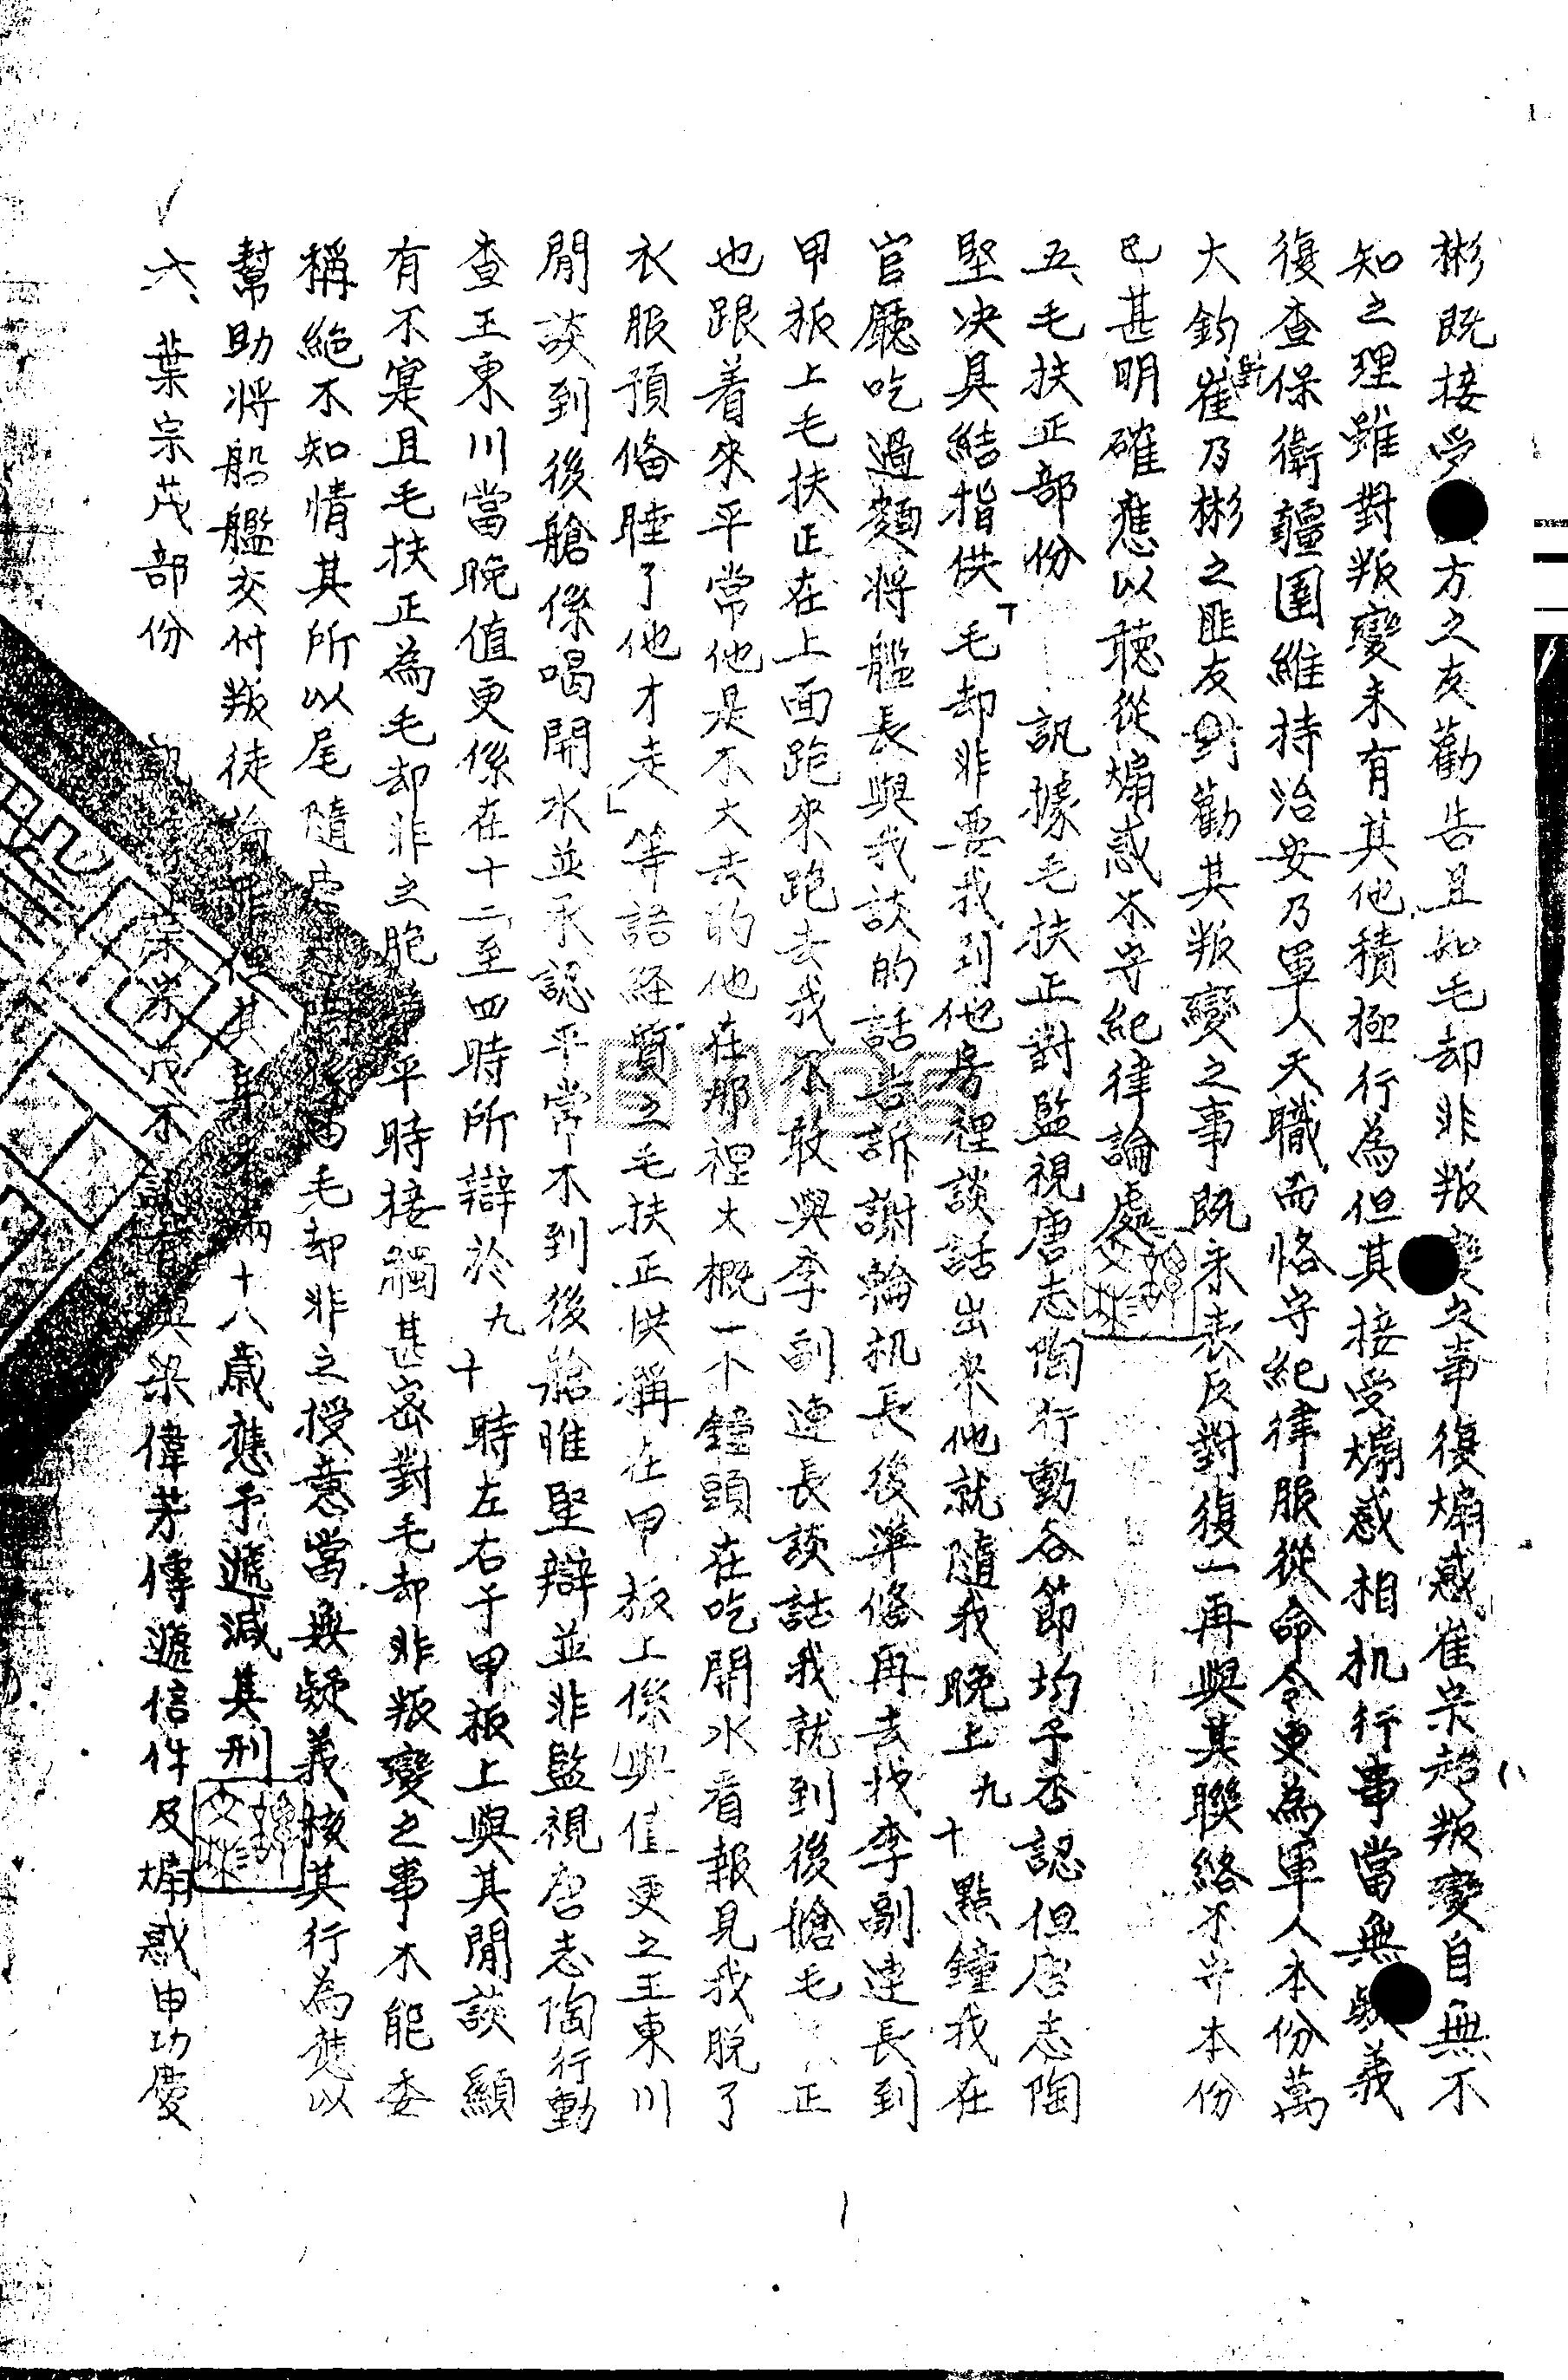 彬既接受方之友勸告且知毛却非叛變之事復煽惑崔宗超叛變自無不
知之理雖對叛變未有其他積極行為但其接受煽惑相机行事當無疑義
復查保衛疆圉維持治安乃軍人天職而恪守紀律服從命令更為軍人本份萬
大鈞崔乃彬之匪友對勸其叛變之事既未表反對復一再與其聯絡不守本份
已甚明確應以聽從煽惑不守紀律論處
五、毛扶正部份 訊據毛扶正對監視唐志陶行動各節均予否認但唐志陶
堅决具結指供「毛却非要我到他房裡談話出來他就隨我晚上九十點鐘我在
官廳吃過麵將艦長與我談的話告訴謝輪机長後準俻再去找李副連長到
甲板上毛扶正在上面跑來跑去我不敢與李副連長談話我就到後艙毛正
也跟着來平常他是不大去的他在那裡大概一个鐘頭在吃開水看報見我脱了
衣服預俻睡了他才走」等語経質之毛扶正供稱在甲板上係與值更之王東川
閒談到後艙係喝開水並承認平常不到後艙惟堅辯並非監視唐志陶行動
查王東川當晚值更係在十二至四時所辯於九十時左右于甲板上與其閒談顯
有不寔且毛扶正為毛却非之胞平時接觸甚密對毛却非叛變之事不能委
稱絶不知情其所以尾隨唐毛却非之授意當無疑義核其行為應以
幫助將船艦交付叛徒論罪但其十八歲應予遞減其刑
六、葉宗茂部份 葉宗茂不與梁偉芳傳遞信件及煽惑申功慶